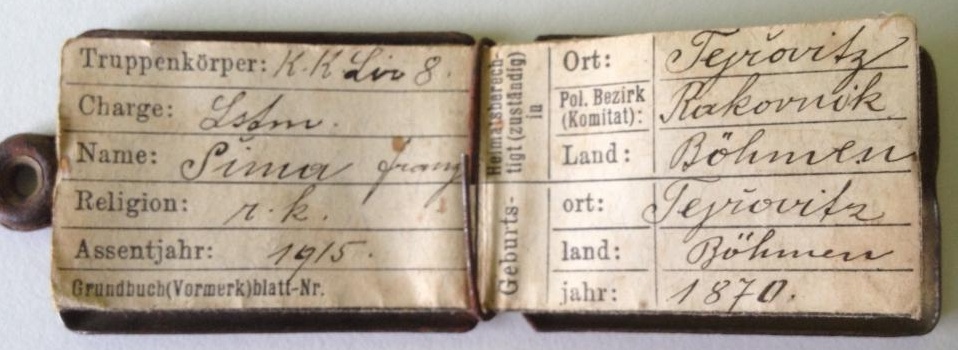 Truppenkörper: K.K Lir 8.
Charge: Lstm.
Name: Šima Franz
Religion: r. k.
Assentjahr: 1915.
Grundbuch(Vormerk)blatt-Nr.
Heimatsberech-
tigt (zuständig)
in
Ort: Tejřovitz
Pol. Bezirk
(Komitat): Rakovnik
Land: Böhmen
Geburts-
ort: Tejřovitz
land: Böhmen
jahr: 1870.